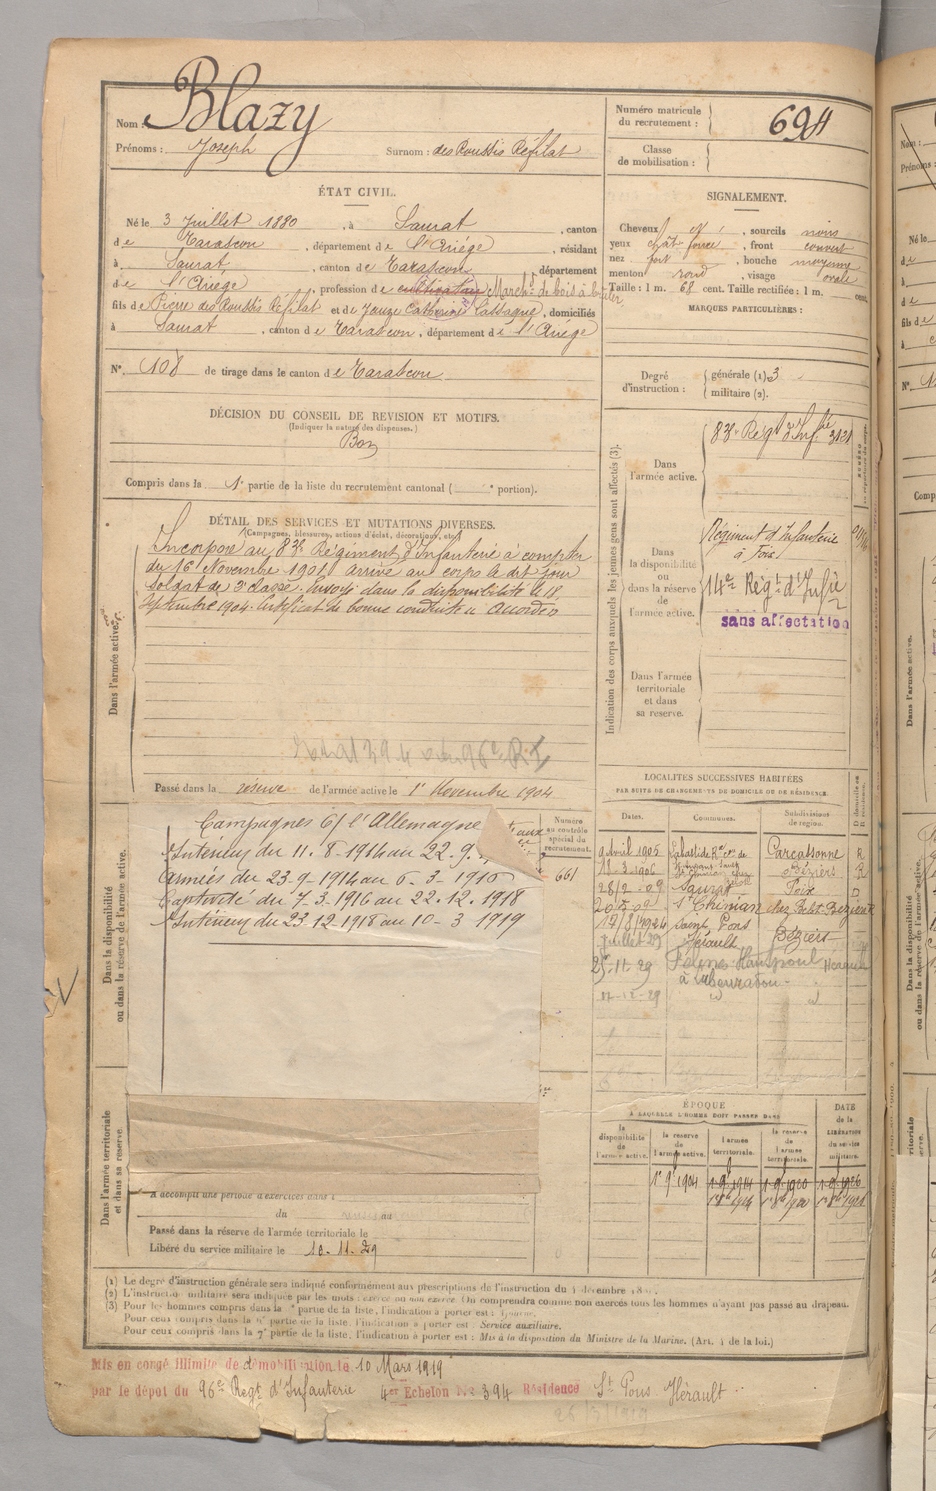 Nom : Blazy
Prénoms : Joseph Surnom : des Roussis Réfilat
Numéro matricule du recrutement : 694
Classe de mobilisation :
ÉTAT CIVIL.
Né le 3 Juillet 1880, à Saurat, canton
de Tarascon, département de l'Ariége, résidant
à Saurat, canton de Tarascon, département
de l'Ariége, profession de cultivateur March. de bois à brûler
fils de Pierre des Roussis Réfilat et de Catherine, domiciliés
à Saurat, canton de Tarascon, département de l'Ariége
N° 108 de tirage dans le canton de Tarascon
SIGNALEMENT.
Cheveux, sourcils noirs
yeux chât. foncé, front couvert
nez fort, bouche moyenne
menton rond, visage ovale
Taille : 1 m. 68 cent. Taille rectifiée : 1 m. cent.
MARQUES PARTICULIÈRES :
Degré d'instruction : générale (1) 3
militaire (2).
DÉCISION DU CONSEIL DE REVISION ET MOTIFS.
(Indiquer la nature des dispenses.)
Bon
Compris dans la 1e partie de la liste du recrutement cantonal ( e portion).
DÉTAIL DES SERVICES ET MUTATIONS DIVERSES.
(Campagnes, blessures, actions d'éclat, décorations, etc.)
Dans l'armée active.
Incorporé au 83e Régiment d'Infanterie à compter
du 16 Novembre 1901 arrivé au corps le dit jour
soldat de 2e classe. Envoyé dans la disponibilité le 18
Septembre 1904. Certificat de bonne conduite « Accordé »
Passé dans la réserve de l'armée active le 1er Novembre 1904
Indication des corps auxquels les jeunes gens sont affectés (3).
Dans l'armée active.
83e Régt d'Infie
Dans la disponibilité ou dans la réserve de l'armée active.
Régiment d'Infanterie
à Foix
14e Régt d'Infie
sans affectation
Dans l'armée territoriale et dans sa réserve.
Dans la disponibilité ou dans la réserve de l'armée active.
Campagnes c/ l'Allemagne
Intérieur du 11. 8. 1914 au 22. 9.
Armées du 23-9-1914 au 6-3-1916
Captivité du 7-3-1916 au 22.12.1918
Intérieur du 23 12 1918 au 10-3 1919
Numéro au contrôle spécial du recrutement.
661
LOCALITÉS SUCCESSIVES HABITÉES
PAR SUITE DE CHANGEMENTS DE DOMICILE OU DE RÉSIDENCE.
Dates. Communes. Subdivisions de région. D domicile ou R résidence.
9 Avril 1905 Carcassonne R
18-3-1906 Béziers R
28/2-09 Saurat Foix D
St Chinian Béziers R
Saint Pons
Juillet 29 Hérault Béziers
25-11-29 Felines Hautpoul
17-12-29
Dans l'armée territoriale et dans sa réserve.
A accompli une période d'exercices dans l
du au
Passé dans la réserve de l'armée territoriale le
Libéré du service militaire le 10-11-29
ÉPOQUE
A LAQUELLE L'HOMME DOIT PASSER DANS
la disponibilité de l'armée active. la réserve de l'armée active. l'armée territoriale. la réserve de l'armée territoriale. DATE de la LIBÉRATION du service militaire.
1er 9 1904 1-9-1914 1-9-1920 1-9-1926
(1) Le degré d'instruction générale sera indiqué conformément aux prescriptions de l'instruction du
(2) L'instruction militaire sera indiquée par les mots : exercé ou non exercé. On comprendra comme non exercés tous les hommes n'ayant pas passé au drapeau.
(3) Pour les hommes compris dans la partie de la liste, l'indication à porter est :
Pour ceux compris dans la partie de la liste, l'indication à porter est : Service auxiliaire.
Pour ceux compris dans la 7e partie de la liste, l'indication à porter est : Mis à la disposition du Ministre de la Marine. (Art. 4 de la loi.)
Mis en congé illimité de démobilisation le 10 Mars 1919
par le dépôt du 96e Regt d'Infanterie 4er Échelon No 394 Résidence St Pons Hérault
26/3/1919